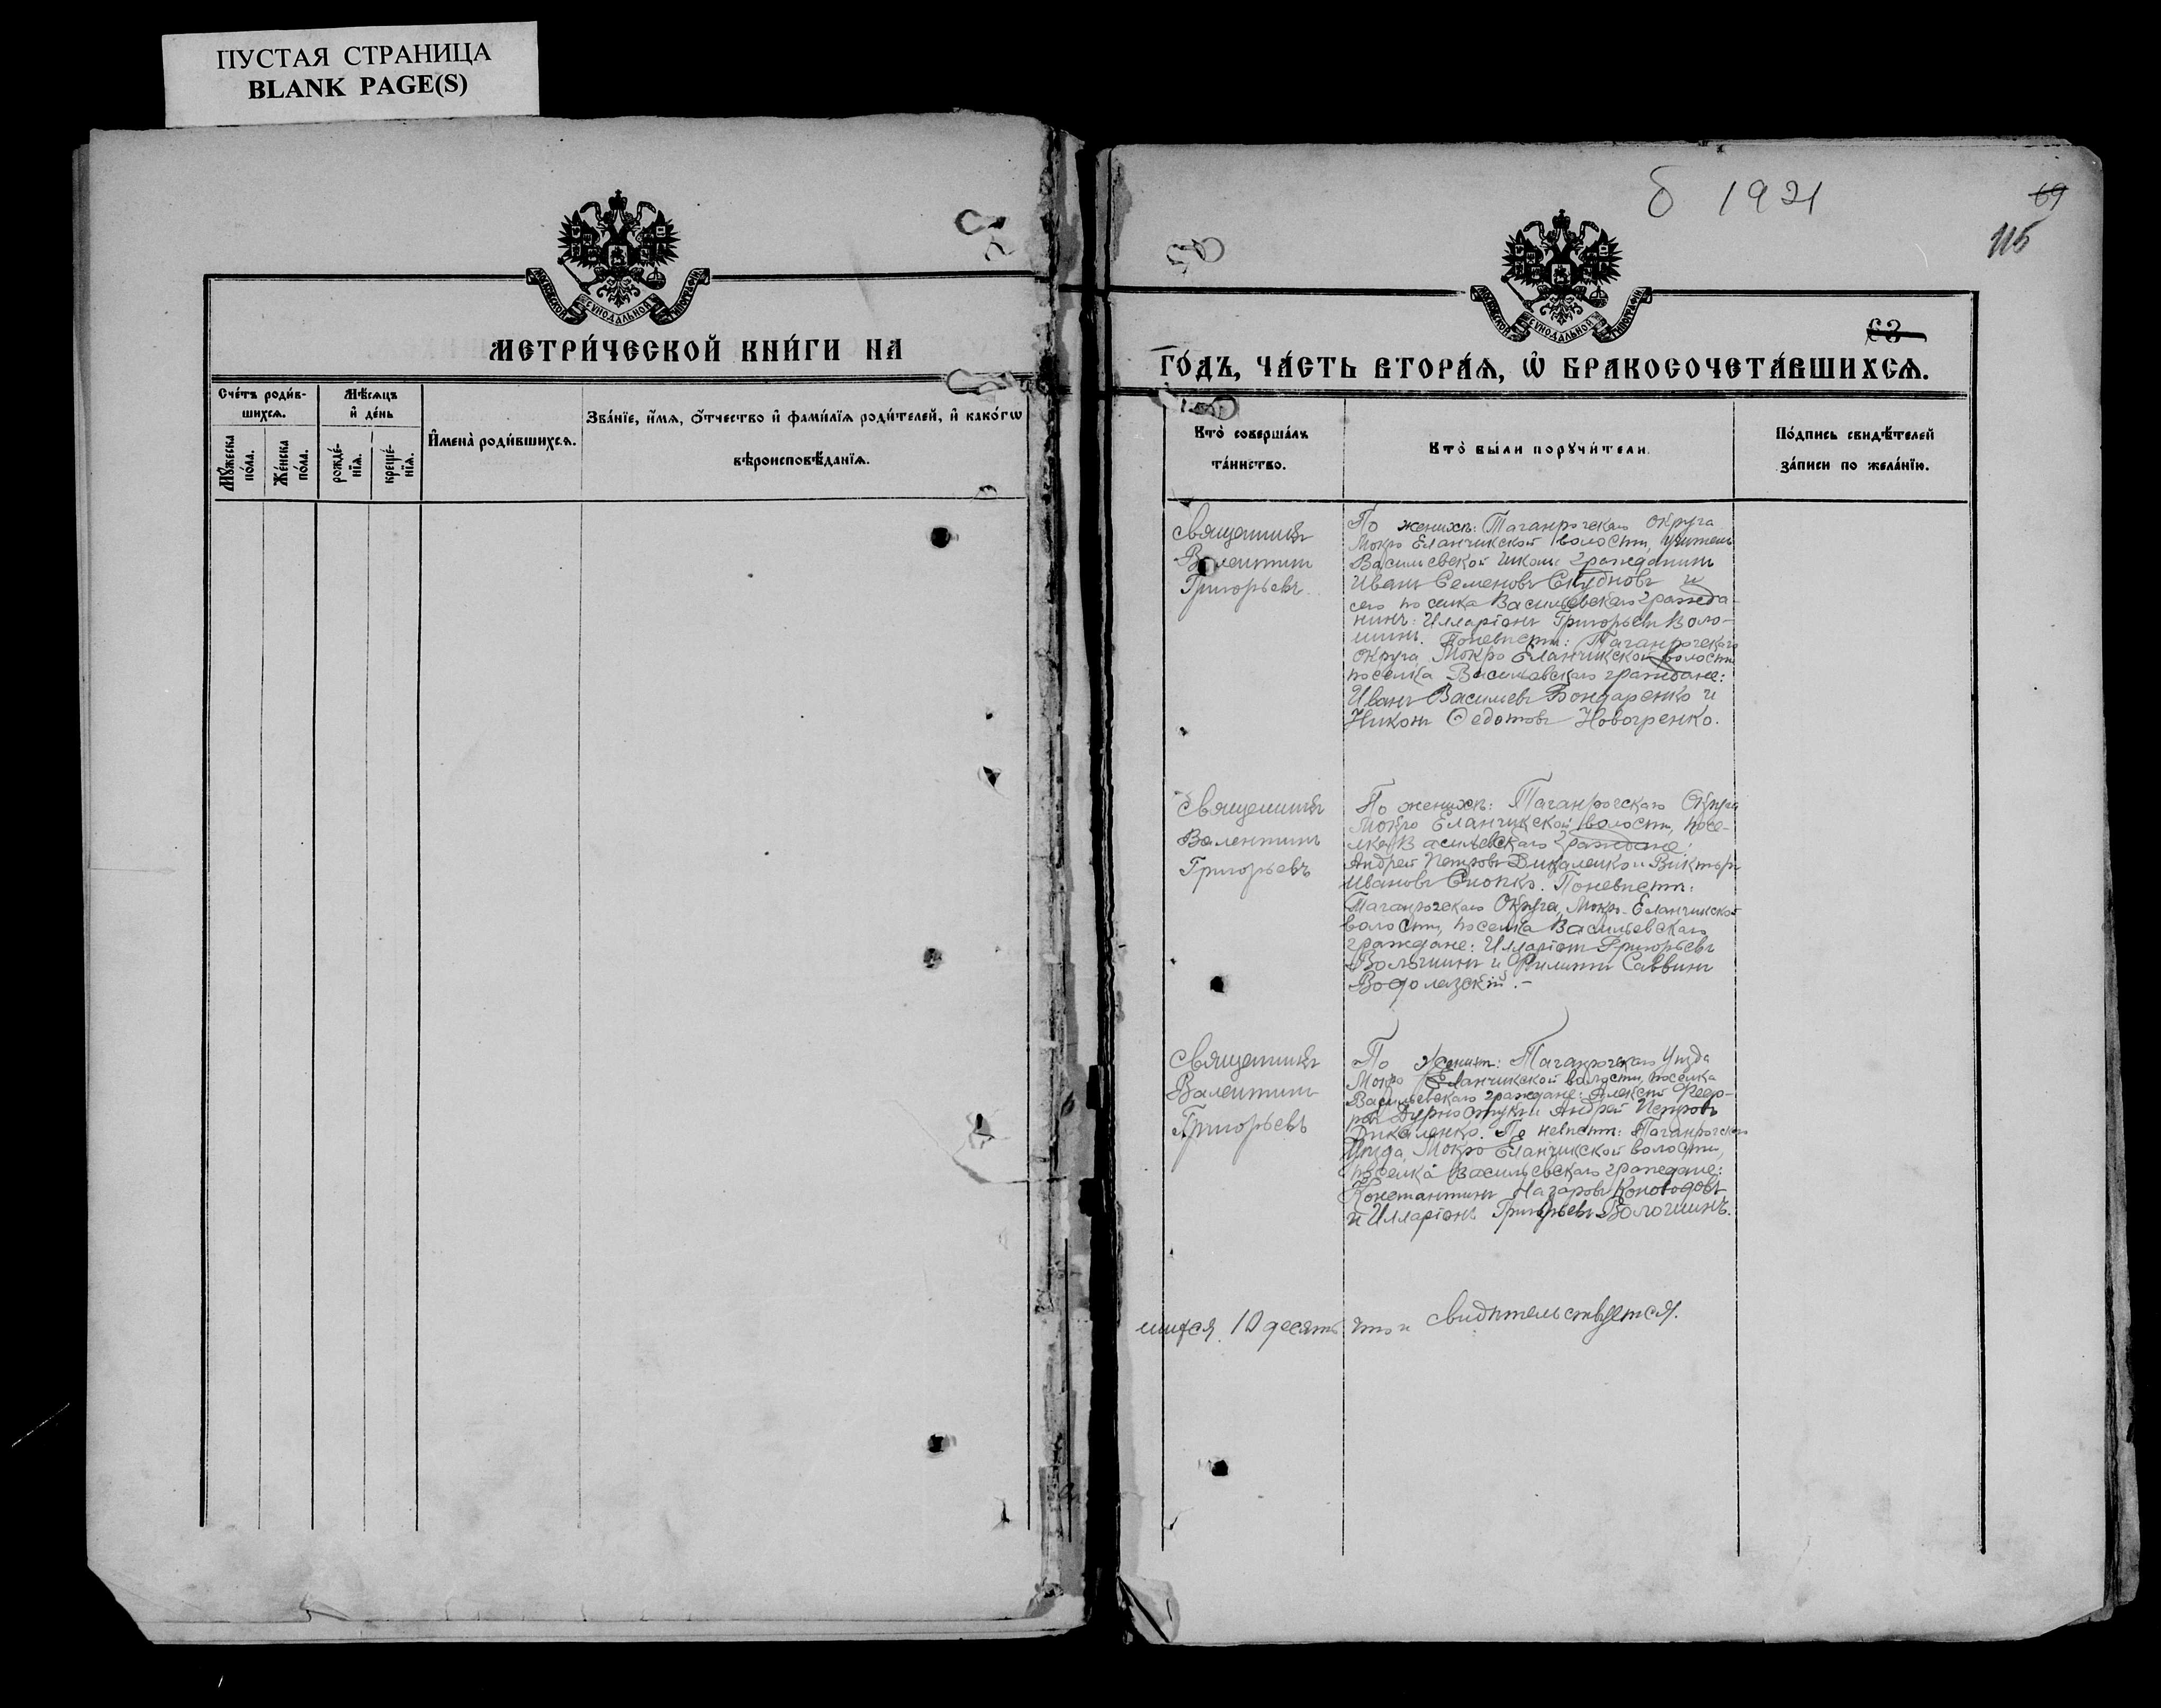 ПУСТАЯ СТРАНИЦА
BLANK PAGE(S)
МОСКОВСКОЙ СѴНОДАЛЬНОЙ ТИПОГРАФІИ
МЕТРИ́ЧЕСКОЙ КНИ́ГИ НА
Сче́тъ роди́в-
шихсѧ.
Мѣ́сѧцъ
и҆ де́нь
Мꙋ́жеска
по́ла.
Же́нска
по́ла.
рожде́-
нїѧ.
креще́-
нїѧ.
И҆мена̀ роди́вшихсѧ.
Зва́нїе, и҆́мѧ, ѻ҆́тчество и҆ фами́лїѧ роди́телей, и҆ како́гѡ
вѣроисповѣ́данїѧ.
1921
69
115
МОСКОВСКОЙ СѴНОДАЛЬНОЙ ТИПОГРАФІИ
63
ГО́ДЪ, ЧА́СТЬ ВТОРА́Ѧ, Ѡ҆ БРАКОСОЧЕТА́ВШИХСѦ.
Кто̀ соверша́лъ
та́инство.
Кто̀ бы́ли порꙋчи́тели.
По́дпись свидѣ́телей
за́писи по жела́нїю.
Священникъ
Валентинъ
Григорьевъ
По женихѣ: Таганрогскаго Округа
Мокро Еланчикской волости, учитель
Васильевской школы гражданинъ
Иванъ Семеновъ Скудновъ и
сего поселка Васильевскаго гражда-
нинъ: Илларіонъ Григорьевъ Воло-
шинъ. По невѣстѣ: Таганрогскаго
Округа, Мокро Еланчикской волости
поселка Васильевскаго граждане:
Иванъ Васильевъ Бондаренко и
Никонъ Федотовъ
Священникъ
Валентинъ
Григорьевъ
По женихѣ: Таганрогскаго Округа
Мокро Еланчикской волости, посе-
лка Васильевскаго граждане:
Андрей Петровъ Дикаленко и Викторъ
Ивановъ Снопко. По невѣстѣ:
Таганрогскаго Округа, Мокро-Еланчикской
волости, поселка Васильевскаго
граждане: Илларіонъ Григорьевъ
Волошинъ и Филиппъ Саввинъ
Водолазскій.-
Священникъ
Валентинъ
Григорьевъ
По женихѣ: Таганрогскаго Уѣзда
Мокро Еланчикской волости, поселка
Васильевскаго граждане: Алексѣй Федо-
ровъ и Андрей Петровъ
Дикаленко. По невѣстѣ: Таганрогскаго
Уѣзда, Мокро Еланчикской волости,
поселка Васильевскаго граждане:
Константинъ Назаровъ Коноводовъ
и Илларіонъ Григорьевъ Волошинъ.
10 десять что и свидѣтельствуется.